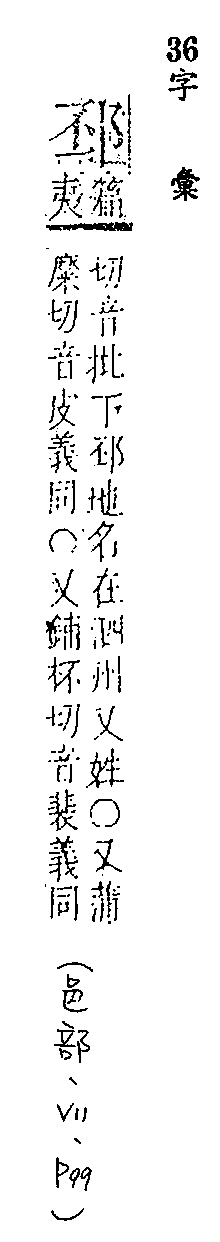 36 字彙
邳
篇
夷
切音批下邳地名在泗州又姓○又蒲
糜切音皮義同○又鋪杯切音裴義同
(邑部、VII、P99)